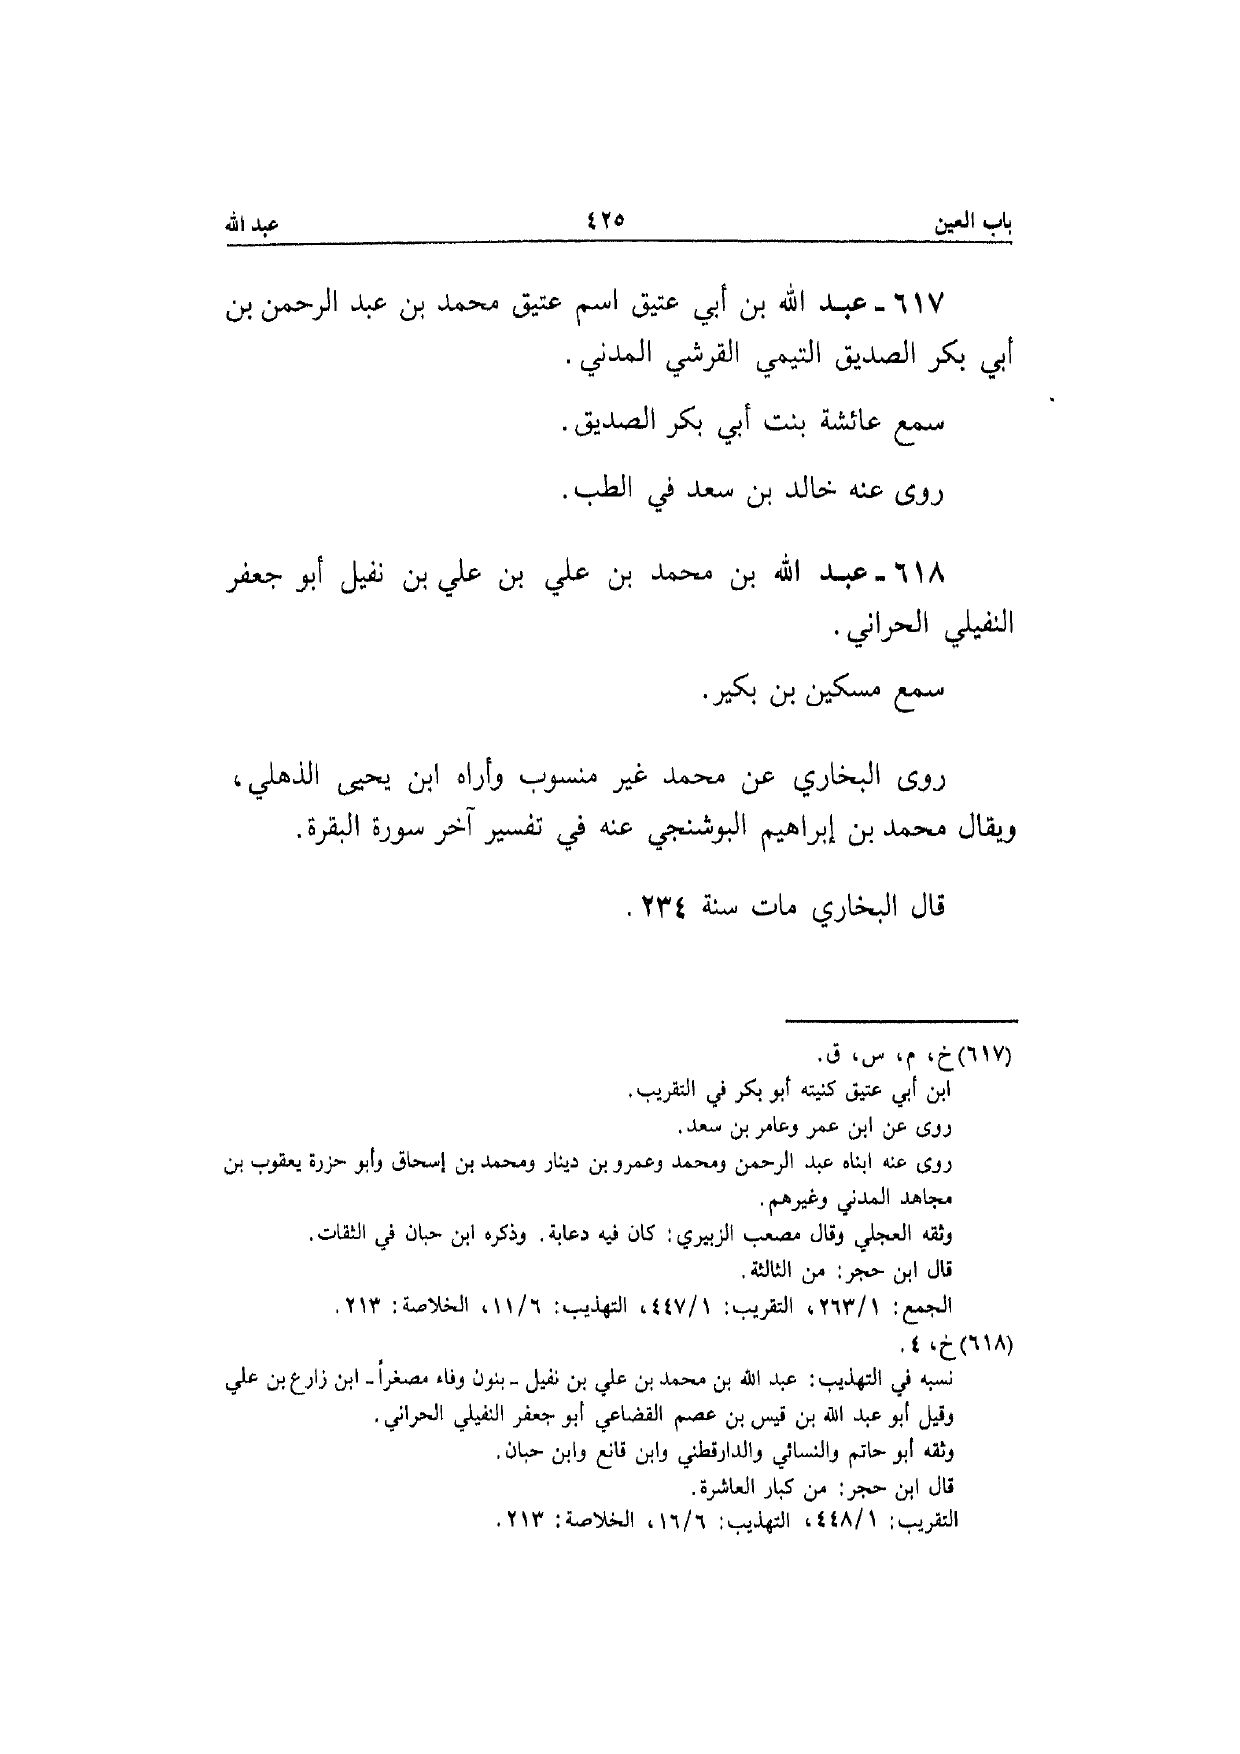 باب العين ٤٢٥ عبد الله
٦١٧ - عبد الله بن أبي عتيق اسم عتيق محمد بن عبد الرحمن بن
أبي بكر الصديق التيمي القرشي المدني .
سمع عائشة بنت أبي بكر الصديق.
روى عنه خالد بن سعد في الطب.
٦١٨ - عبد الله بن محمد بن علي بن علي بن نفيل أبو جعفر
النفيلي الحراني .
سمع مسكين بن بكير.
روى البخاري عن محمد غير منسوب وأراه ابن يحيى الذهلي،
ويقال محمد بن إبراهيم البوشنجي عنه في تفسير آخر سورة البقرة.
قال البخاري مات سنة ٢٣٤ .
(٦١٧) خ، م، س، ق.
ابن أبي عتيق كنيته أبو بكر في التقريب.
روى عن ابن عمر وعامر بن سعد.
روى عنه ابناه عبد الرحمن ومحمد وعمرو بن دينار ومحمد بن إسحاق وأبو حزرة يعقوب بن
مجاهد المدني وغيرهم.
وثقه العجلي وقال مصعب الزبيري: كان فيه دعابة. وذكره ابن حبان في الثقات.
قال ابن حجر: من الثالثة.
الجمع: ٢٦٣/١، التقريب: ٤٤٧/١، التهذيب: ١١/٦، الخلاصة: ٢١٣.
(٦١٨) خ، ٤.
نسبه في التهذيب: عبد الله بن محمد بن علي بن نفيل - بنون وفاء مصغراً - ابن زارع بن علي
وقيل أبو عبد الله بن قيس بن عصم القضاعي أبو جعفر النفيلي الحراني.
وثقه أبو حاتم والنسائي والدارقطني وابن قانع وابن حبان.
قال ابن حجر: من كبار العاشرة.
التقريب: ٤٤٨/١، التهذيب: ١٦/٦، الخلاصة: ٢١٣.